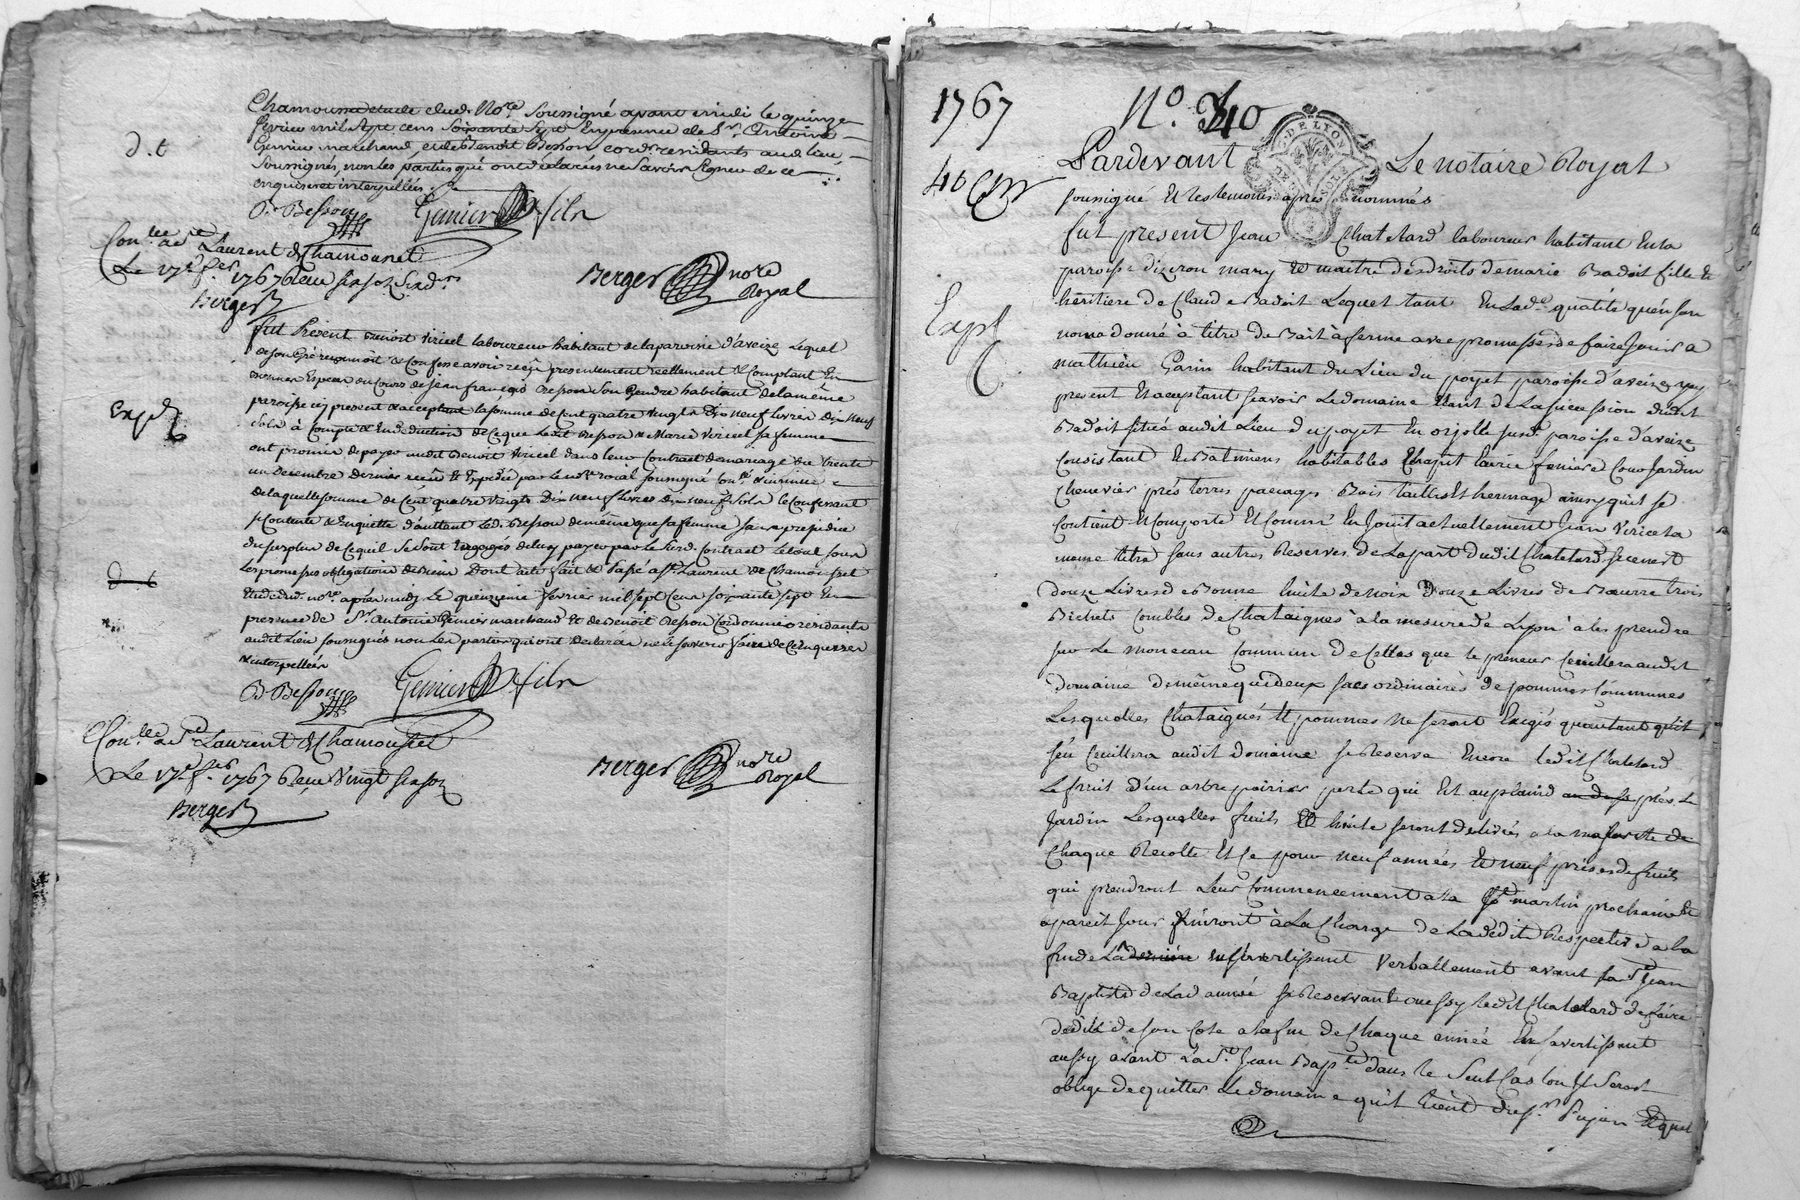 Chamousset etude dud. No.re Soussigné avant midi le quinze
fevrier mil sept cens soixante sept En presence de Sr. Antoine
Genier marchand, et de Benoit Besson cord.r residants aud. lieu,
Soussignés, non les parties qui ont déclarées ne savoir signer de ce
enquises et interpellées
d. t
B. Besson Genier fils
Con.llé a St. Laurent de Chamousset
Le 17e fer. 1767 Reçu
Berger
Berger no.re
Royal
fut Présent Benoit Viricel laboureur habitant de la paroisse d'aveize Lequel
de son gré reconnoit & Confesse avoir reçu presentement reellement & Comptant En
Bonnes Especes du Cours de Jean françois Besson Son Gendre habitant de la même
paroisse icy present & acceptant la somme de Cent quatre Vingt Dix neuf Livres Dix neuf
Sols à Compte & En deduction de Ce que Ledit Besson & Marie Viricel sa femme
ont promis de payer audit Benoit Viricel dans leur Contrat de mariage du trente
un Decembre dernier reçu & Expedié par Le no.re roial soussigné
de laquelle somme de Cent quatre Vingts Dix neuf Livres Dix neuf Sols le Confessant
se Contente & En quitte d'autant Led. Besson de même que sa femme sans prejudice
du surplus de Ce qu'il Se Sont Engagés de luy payer par Le Susd. Contract Le tout sous
Les promesses obligations de Biens Dont acte fait & Passé a St. Laurent de Chamousset
Etude dud. no.re après midy Le quinzieme fevrier mil sept Cens soixante sept En
presence de Sr. Antoine Genier marchand Et de Benoit Besson Cordonnier residants
audit Lieu soussignés non Les parties qui ont declarées ne le scavoir faire de Ce Enquises
& interpellées
Exp.
d. t
B. Besson Genier fils
Con.llé a St. Laurent de Chamousset
Le 17e fer. 1767 Reçu Vingt six sols
Berger
Berger no.re
Royal
1767 No. 40
DE LYON
Pardevant Le notaire Royal
40
soussigné Et les temoins après nommés
fut present Jean Chatelard laboureur habitant En la
paroisse d'izeron mary & maitre des droits de marie Badoit fille &
heritiere de Claude Badoit Lequel tant En Lad. qualité qu'en son
nom a donné à titre de Bail à ferme avec promesses de faire Jouir a
Exp.
mathieu Garin habitant du Lieu du poyet paroisse d'aveize icy
present Et acceptant sçavoir Le domaine Etant de La succession dudit
Badoit situé audit Lieu du poyet En orjolle susd. paroisse d'aveize
Consistant En Batimens habitables Chapit Ecurie feniere Cour Jardin
Chenevier prés terres pacages Bois taillis Et hermage ainsy qu'il se
Contient Et Comporte Et Comme En Jouit actuellement Jean Viricel a
meme titre sans autres Reserves de La part dudit Chatelard sinon
douze Livres de Bonne huile de Noix Douze Livres de Beurre trois
Bichets Combles de Chataignes à la mesure de Lyon à les prendre
sur Le monceau Commun de Celles que le preneur Ceuillera audit
domaine de même que deux sacs ordinaires de pommes Communes
Lesquelles Chataignes Et pommes ne seront Exigés qu'autant qu'il
s'en Ceuillera audit domaine se Reserve Encore ledit Chatelard
Le fruit d'un arbre poirier perle qui Est au plaind au dessus près Le
Jardin Lesquelles fruits Et huile seront delivrés a la
Chaque Recolte Et Ce pour neuf années & neuf prises de fruits
qui prendront Leur Commencement a la St. martin prochaine &
a pareil Jour finiront à La Charge de La dédite Respective a la
fin de La s'avertissant verballement avant la St. Jean
Baptiste de Lad. année se Reservant aussy ledit Chatelard de faire
dédite de son Coté a la fin de Chaque année En s'avertissant
aussy avant La St. Jean Bap.te dans le Seul Cas ou Il Seroit
obligé de quitter Le domaine qu'il tient du Sr. Pujan